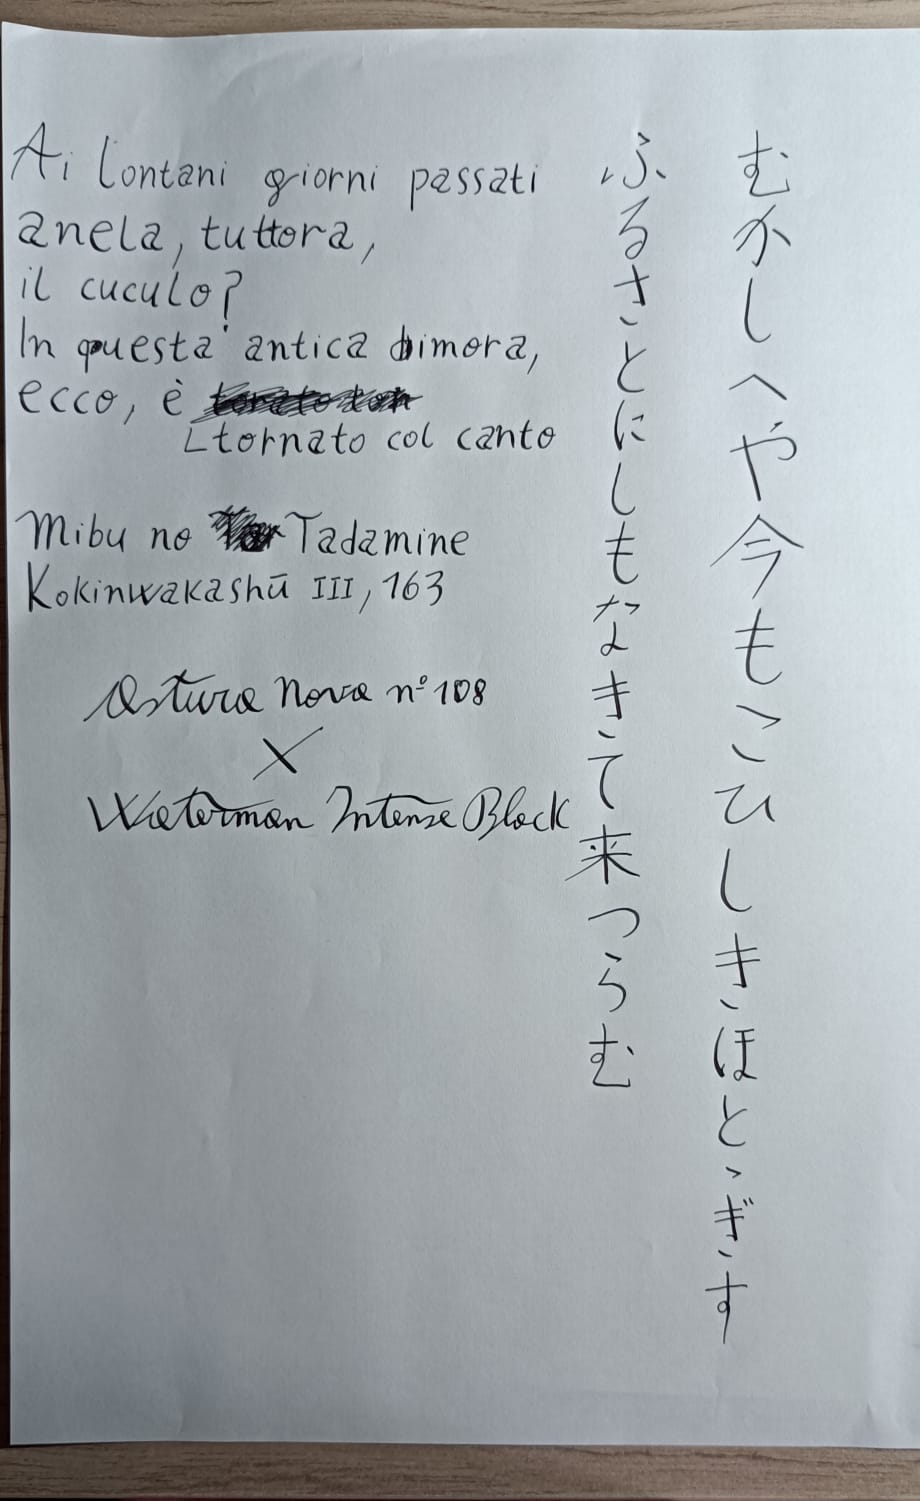 むかしへや今もこひしきほとゝぎす
ふるさとにしもなきて来つらむ
Ai lontani giorni passati
anela, tuttora,
il cuculo?
In questa antica dimora,
ecco, è
tornato col canto
Mibu no Tadamine
Kokinwakashū III, 163
Astura Nova nº 108
X
Waterman Intense Black